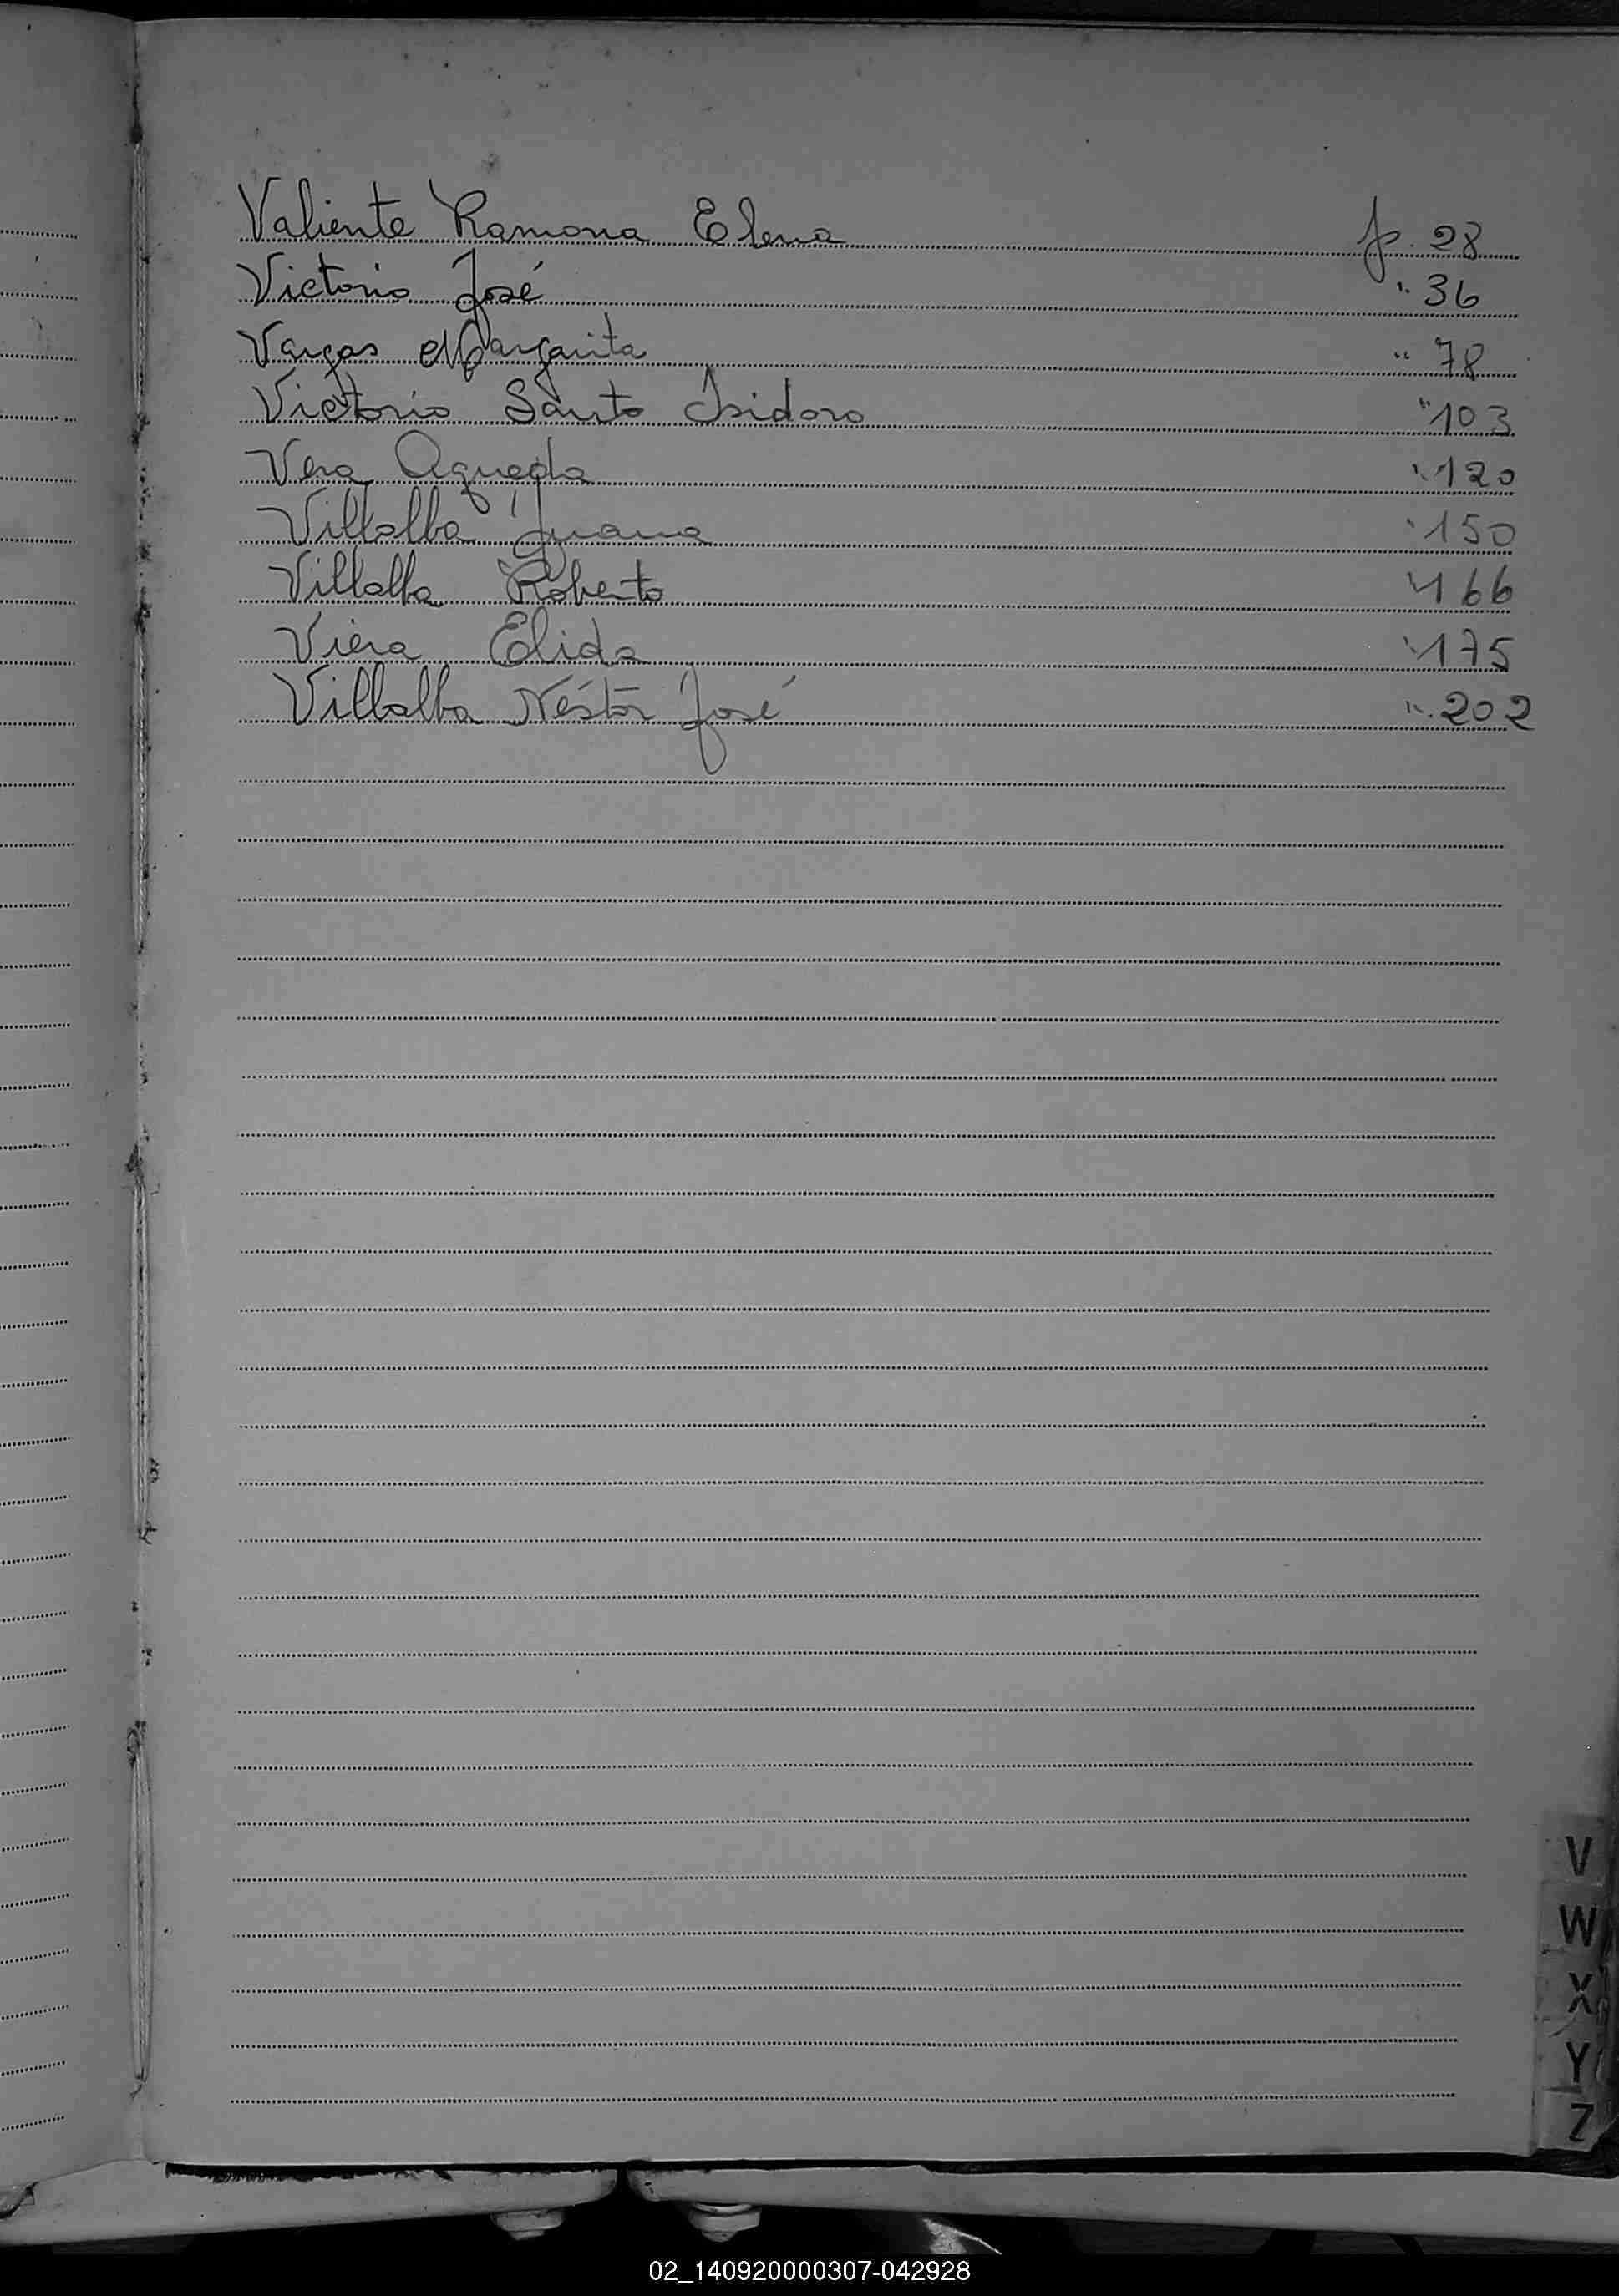 Valiente Ramona Elena f. 28
Victorio José " 36
Vargas Margarita " 78
Victorio Santo Isidoro " 103
Vera Agueda " 120
Villalba Juana " 150
Villalba Roberto " 166
Viera Elida " 175
Villalba Néstor José " 202
V
W
X
Y
Z
02_140920000307-042928